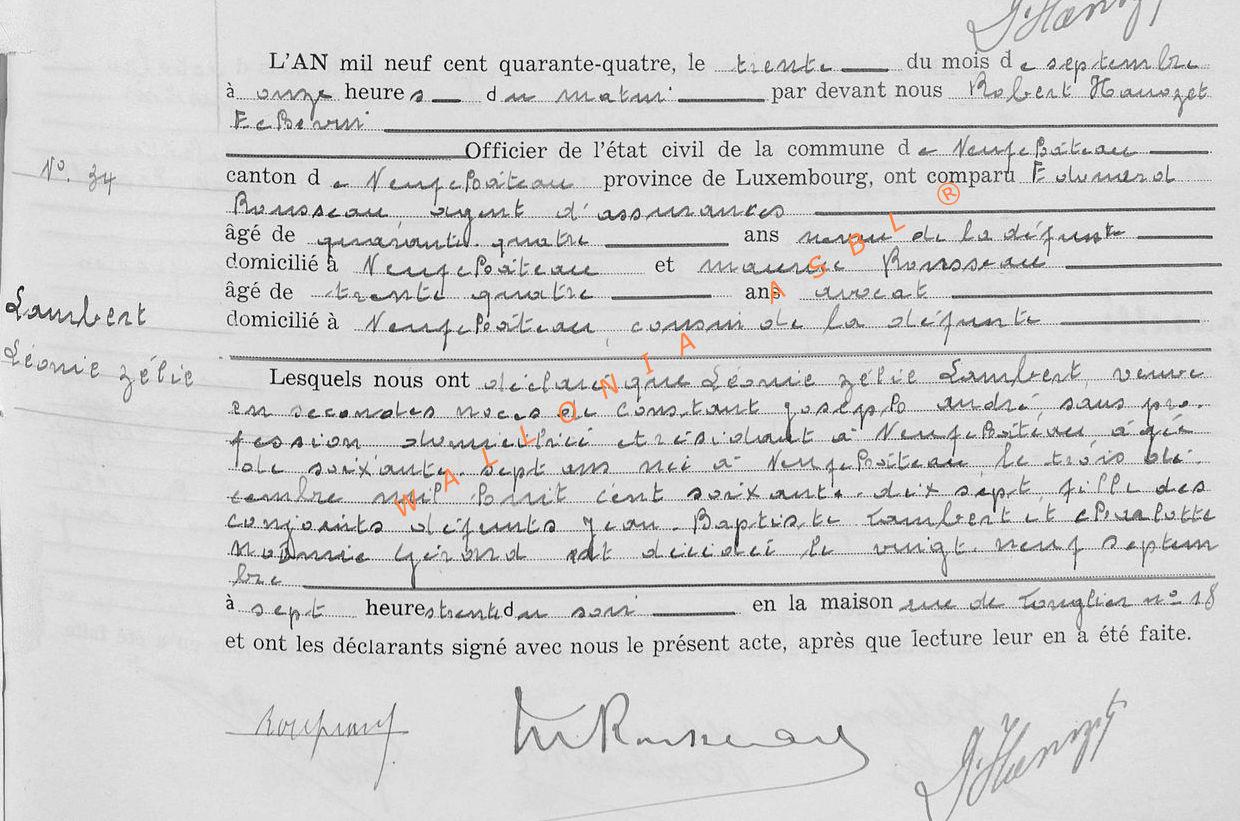 L'AN mil neuf cent quarante-quatre, le trente du mois de septembre
à onze heures du matin par devant nous Robert Hanozet
Echevin
Officier de l'état civil de la commune de Neufchâteau
No. 34
canton de Neufchâteau province de Luxembourg, ont comparu Edmond
Rousseau, agent d'assurances
âgé de quarante quatre ans neveu de la défunte
domicilié à Neufchâteau et maurice Rousseau
âgé de trente quatre ans avocat
domicilié à Neufchâteau, cousin de la défunte
Lambert
Léonie zélie
Lesquels nous ont déclaré que Léonie zélie Lambert, veuve
en secondes noces de Constant Joseph andré, sans pro-
fession domiciliée et résidant à Neufchâteau, âgée
de soixante-sept ans née à Neufchâteau, le trois dé-
cembre mil huit cent soixante-dix sept, fille des
conjoints défunts Jean-Baptiste Lambert et Charlotte
est décédée le vingt-neuf septem
bre
à sept heures trente du soir en la maison rue de n° 18
et ont les déclarants signé avec nous le présent acte, après que lecture leur en a été faite.
WALLONIA ASBL ®